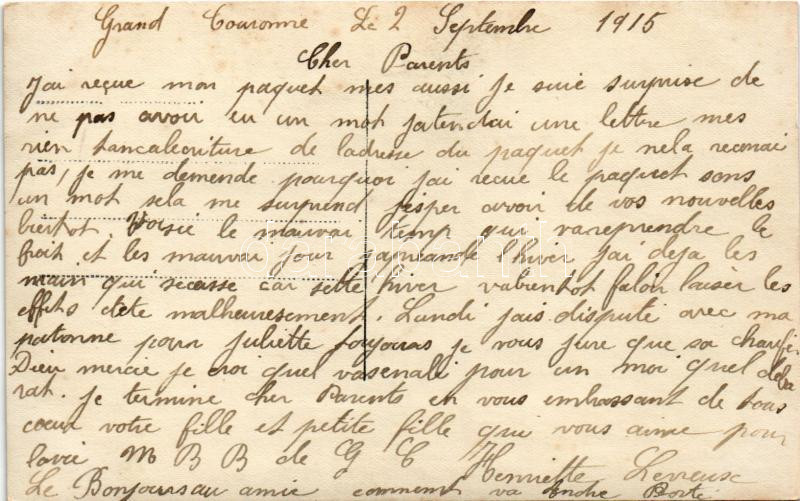 Grand Couronne Le 2 Septembre 1915
Cher Parents
J'ai reçue mon paquet mes aussi je suis surprise de
ne pas avoir eu un mot jatendai une lettre mes
rien lecriture de ladresse du paquet je nela reconai
pas, je me demende pourquoi j'ai recue le paquet sans
un mot sela me surprend jesper avoir de vos nouvelles
bientot. le mauvai temp qui vareprendre le
froit et les mauvai jour l'hiver j'ai deja les
main qui secasse car sette hiver vabientot faloir laiser les
effits dete malheuresement. Lundi jais disputé avec ma
patonne pour juliette toujours je vous jure que sa chauffé
Dieu mercie je croi quel pour un moi quel
rat. je termine cher Parents en vous embrassant de tous
cœur votre fille et petite fille qui vous aime pour
lavie M B B de G C Henriette
Le Bonjour au amie comment va Poste